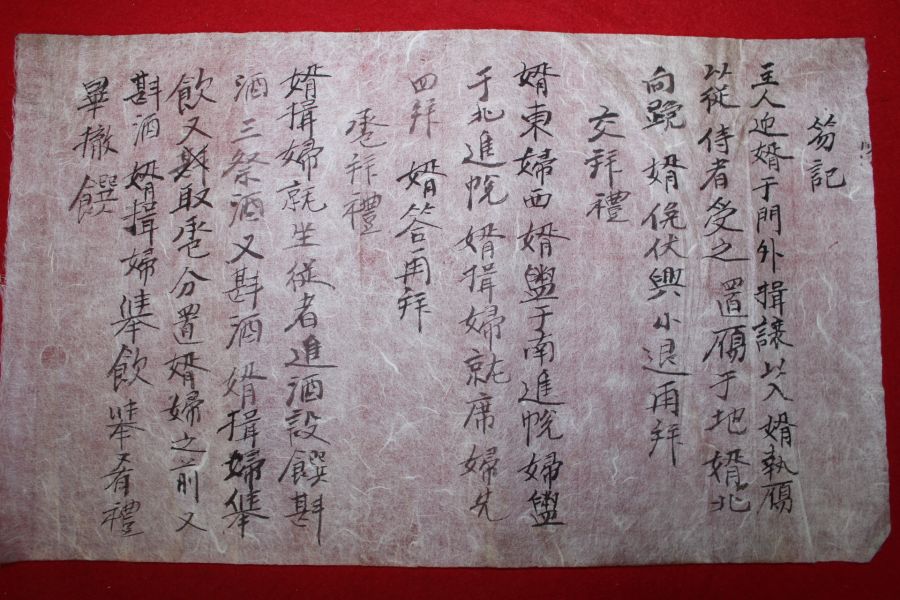 笏記
主人迎婿于門外揖讓以入婿執鴈
以從侍者受之置鴈于地婿北
向跪 婿俛伏興小退再拜
交拜禮
婿東婦西婿盥于南進帨婦盥
于北進帨婿揖婦就席婦先
四拜 婿答再拜
卺拜禮
婿揖婦就坐從者進酒設饌斟
酒三祭酒又斟酒婿揖婦擧
飮又斟取卺分置婿婦之前又
斟酒婿揖婦擧飮擧肴禮
畢撤饌